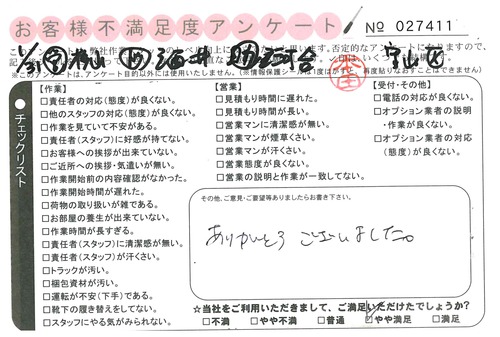 お客様不満足度アンケート
No 027411
チェックリスト
【作業】
□責任者の対応(態度)が良くない。
□他のスタッフの対応(態度)が良くない。
□作業を見ていて不安がある。
□責任者(スタッフ)に好感が持てない。
□お客様への挨拶が出来ていない。
□ご近所への挨拶・気遣いが無い。
□作業開始前の内容確認がなかった。
□作業開始時間が遅れた。
□荷物の取り扱いが雑である。
□お部屋の養生が出来ていない。
□作業時間が長すぎる。
□責任者(スタッフ)に清潔感が無い。
□責任者(スタッフ)が汗くさい。
□トラックが汚い。
□梱包資材が汚い。
□運転が不安(下手)である。
□靴下の履き替えをしてない。
□スタッフにやる気がみられない。
【営業】
□見積もり時間に遅れた。
□見積もり時間が長い。
□営業マンに清潔感が無い。
□営業マンが煙草くさい。
□営業マンが汗くさい。
□営業態度が良くない。
□営業の説明と作業が一致してない。
【受付・その他】
□電話の対応が良くない。
□オプション業者の説明
・作業が良くない。
□オプション業者の対応
(態度)が良くない。
その他、ご意見・ご要望等ありましたらお書き下さい。
ありがとうございました。
☆当社をご利用いただきまして、ご満足いただけたでしょうか?
□不満 □やや不満 □普通 □やや満足 □満足